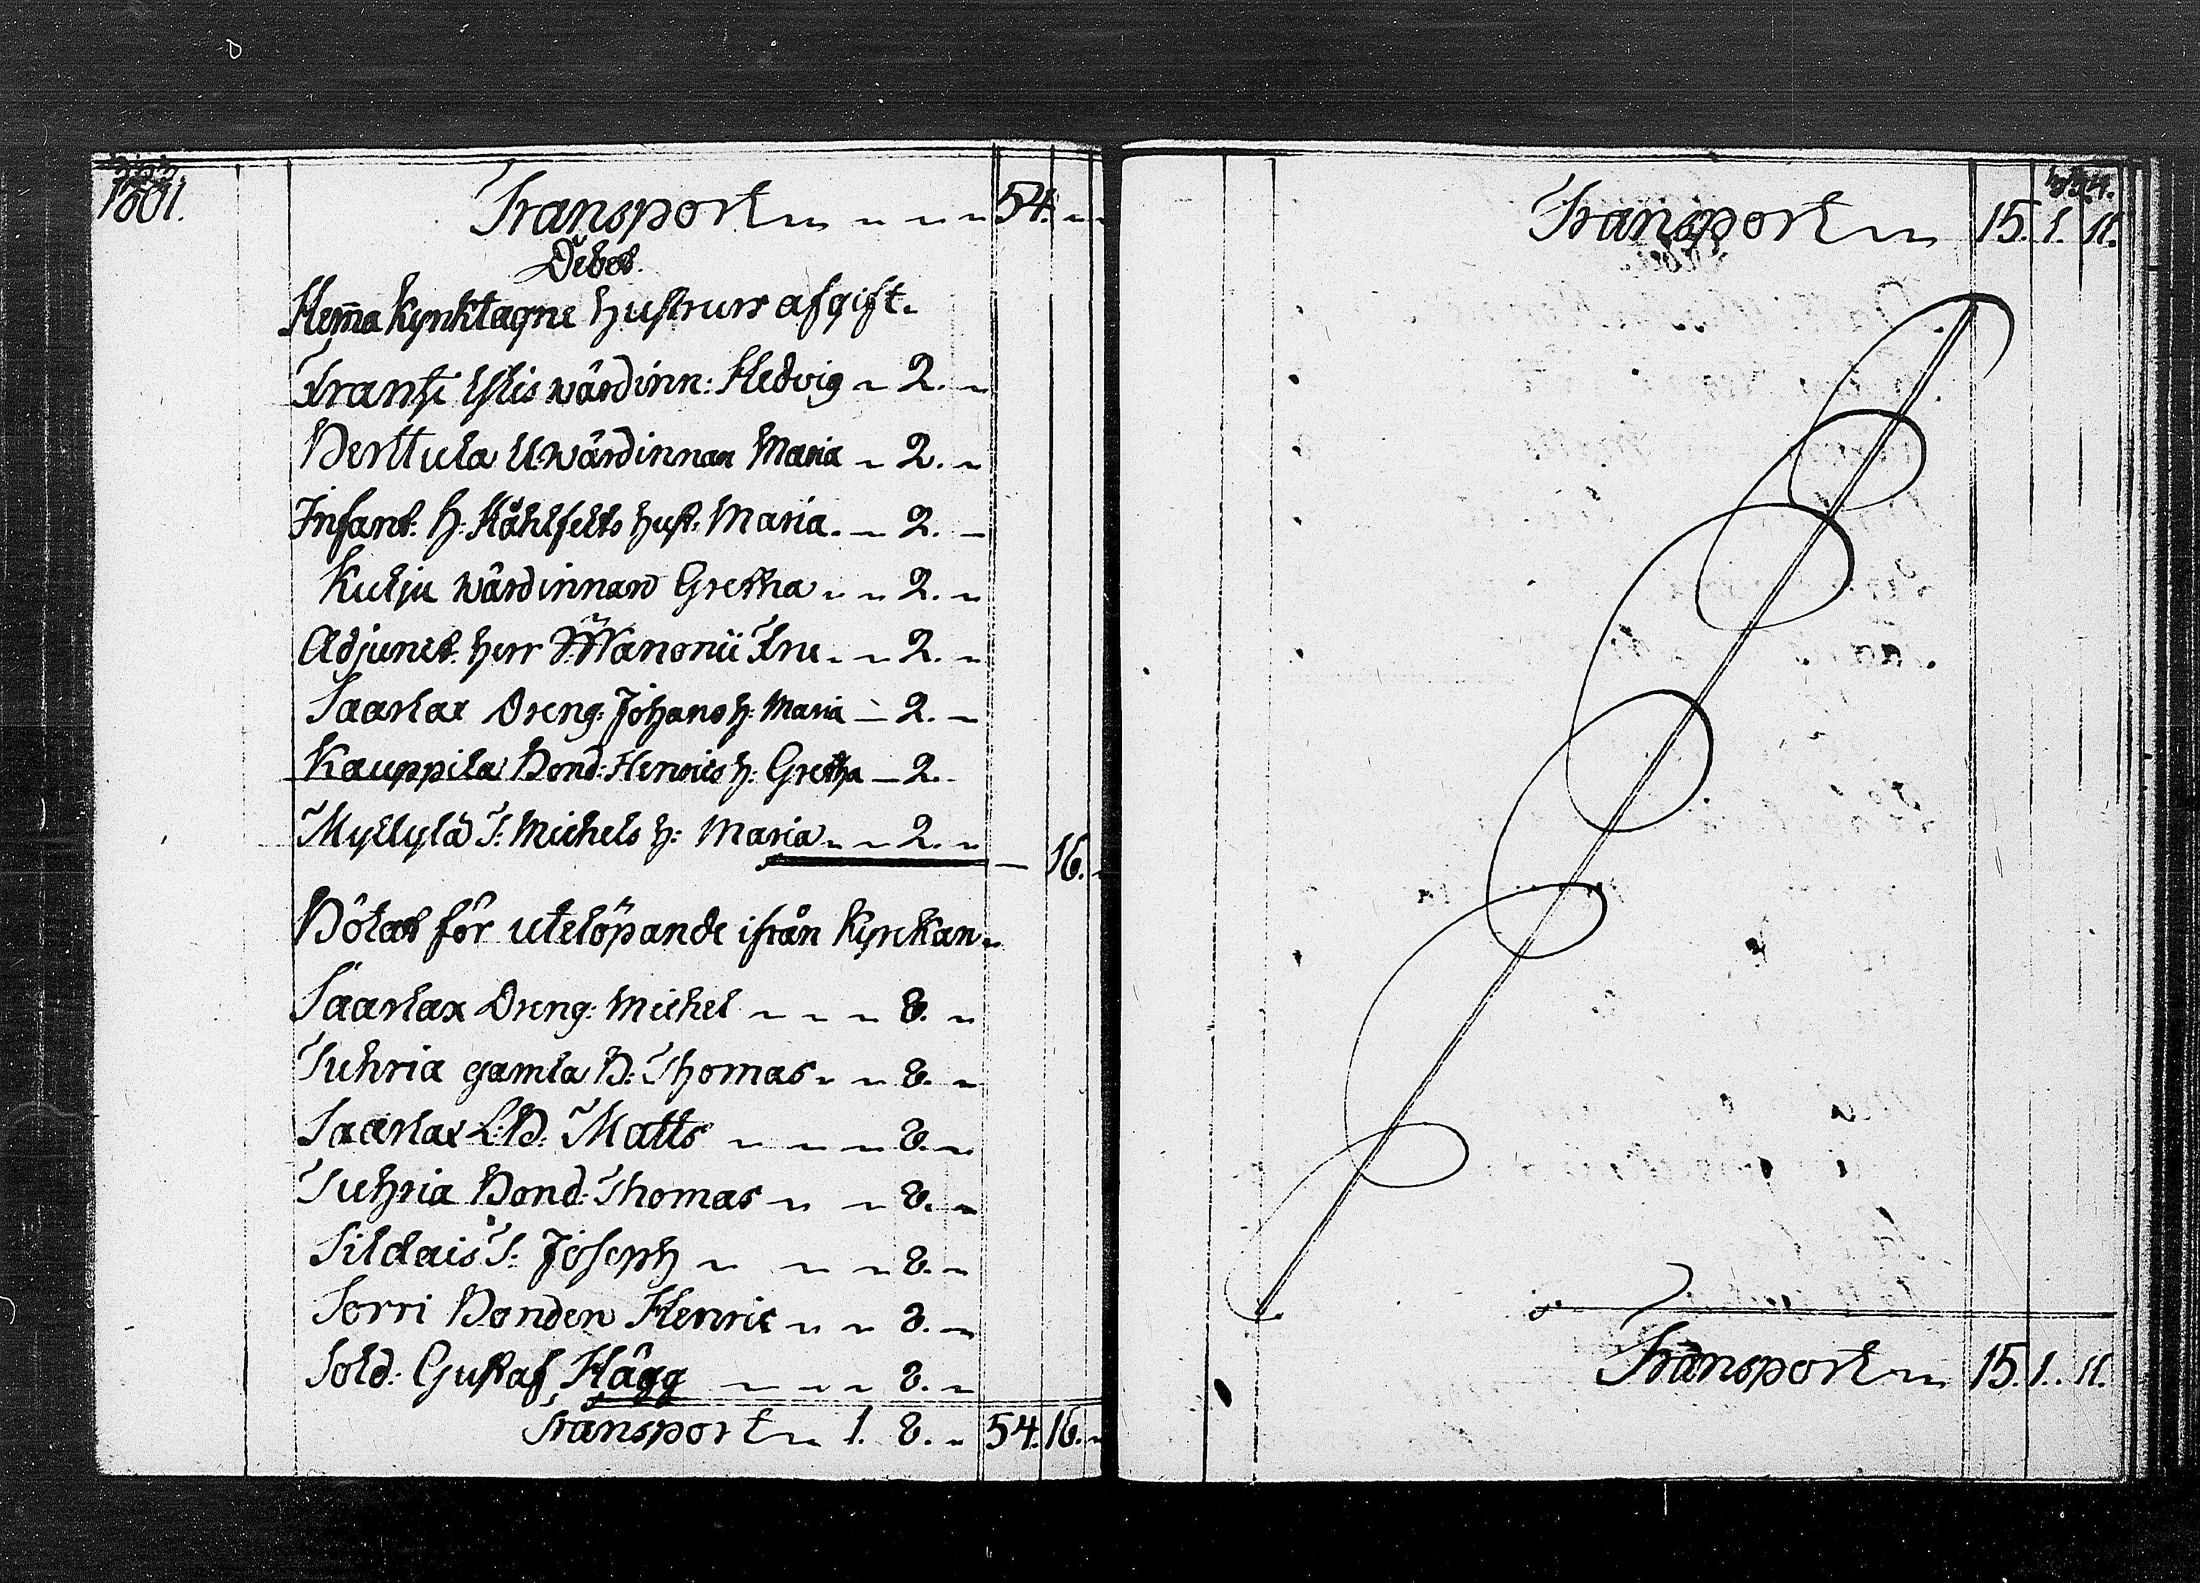 1801.
Transport 54.
Debet.
Hem̄a Kyrktagne Hustrurs afgift.
Frantsi Ytlis wärdinn: Hedvig 2.
Berttula Uwärdinnan Maria 2.
Infant. H: Kåhlfelts hust: Maria. 2.
Kulju wärdinnan Gretha 2.
Adjunct. herr Wanonii Fru 2.
Saarlax Dreng: Johans h: Maria 2.
Kauppila Bond: Henrics h: Gretha 2.
Myllylä S: Michels h: Maria 2. 16.
Böter för utelöpande ifrån Kyrkan
Saarlax Dreng: Michel 8.
Suhria gamla B: Thomas 8.
Saarlax L:B: Matts 8.
Suhria Bond: Thomas 8.
Sildais S: Joseph 8.
Sorri Bonden Henric 8.
Sold: Gustaf Hägg 8.
Transport 1. 8. 54. 16.
Transport 15. 1. 11.
Transport 15. 1. 11.